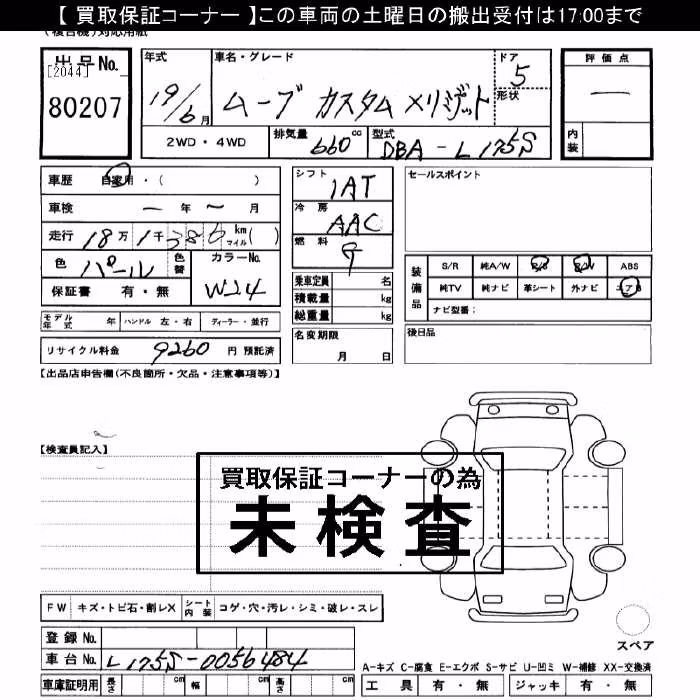 【 買取保証コーナー 】この車両の土曜日の搬出受付は17:00まで
(複合機)対応用紙
出品No.
[2044]
80207
年式
19/6月
車名・グレード
ムーブ カスタム メリミテッド
ドア
5
形状
評価点
一
内装
2WD・4WD
排気量 660 cc
型式 DBA-L175S
車歴 自家用・( )
車検 一 年 ～ 月
走行 18万 1千 386 km マイル( )
色 パール 色替
カラーNo.
W24
保証書 有・無
モデル年式 年 ハンドル 左・右 ディーラー・並行
リサイクル料金 9260 円 預託済
シフト
1AT
冷房
AAC
燃料
g
乗車定員 名
積載量 kg
総重量 kg
名変期限
月 日
セールスポイント
装備品
S/R 純A/W P/S P/W ABS
純TV 純ナビ 革シート 外ナビ エアB
ナビ型番:
後日品
【出品店申告欄(不良箇所・欠品・注意事項等)】
【検査員記入】
買取保証コーナーの為
未検査
FW キズ・トビ石・割レX シート内装 コゲ・穴・汚レ・シミ・破レ・スレ
登録No.
車台No. L175S-0056484
車庫証明用 長さ cm 幅 cm 高さ cm
スペア
A-キズ C-腐食 E-エクボ S-サビ U-凹ミ W-補修 XX-交換済
工具 有・無 ジャッキ 有・無